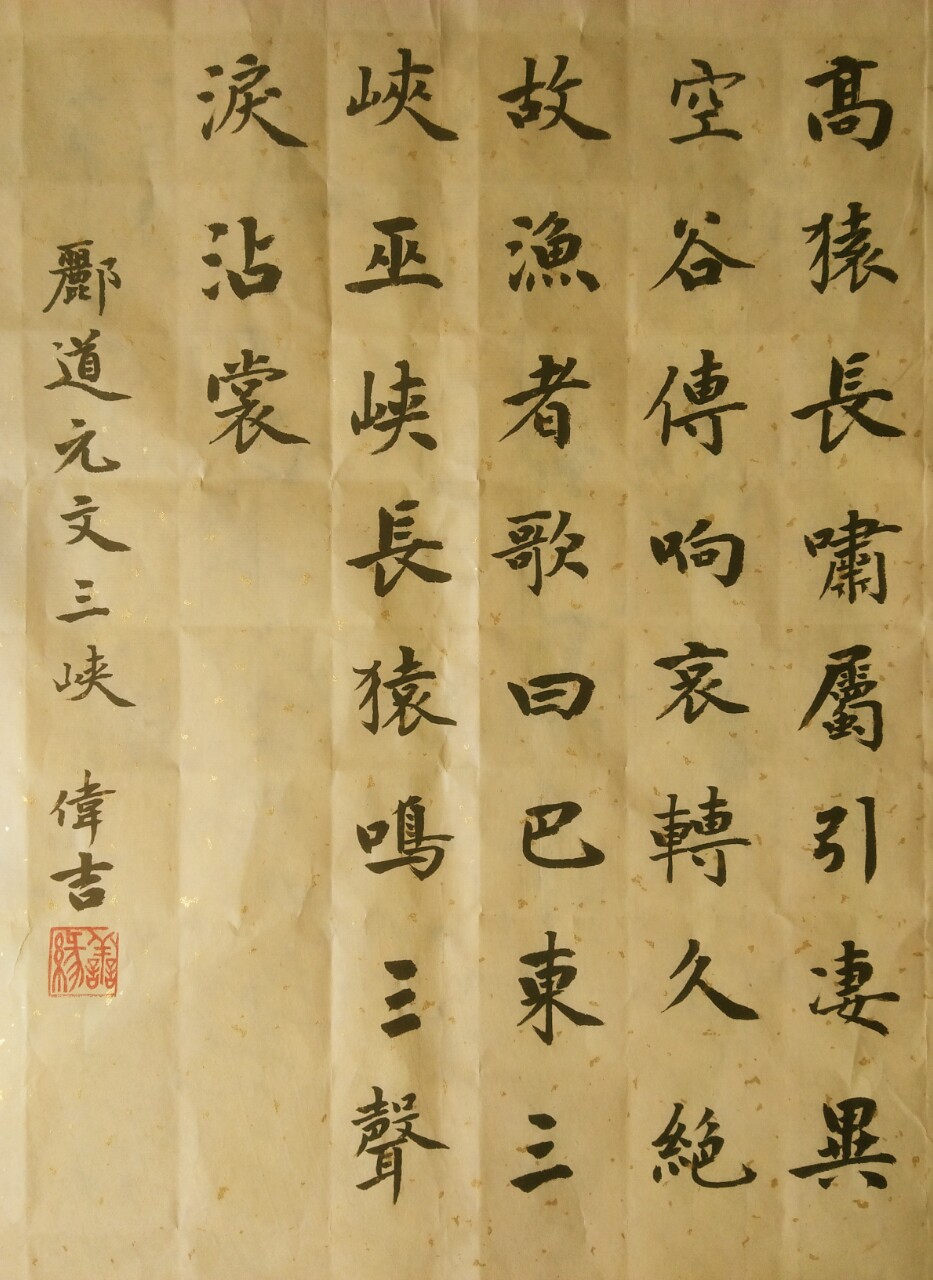 高猿長嘯屬引淒異
空谷傳响哀轉久絕
故漁者歌曰巴東三
峽巫峽長猿鳴三聲
淚沾裳
酈道元文三峽 偉吉
善緣